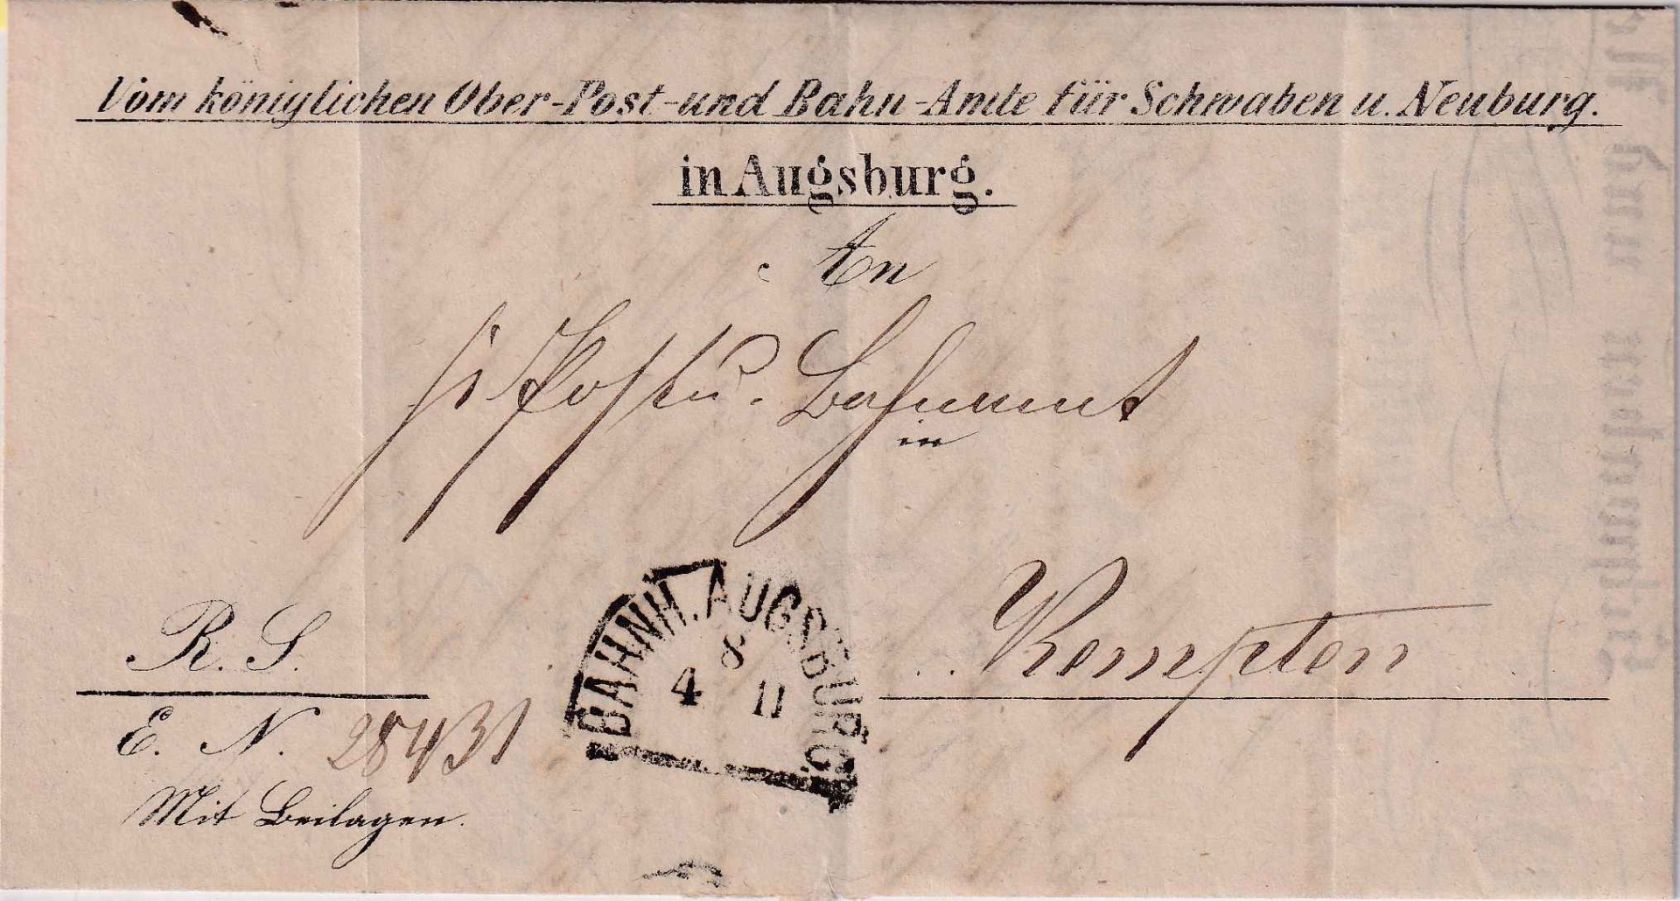 Vom königlichen Ober-Post-und Bahn-Amte für Schwaben u. Neuburg.
in Augsburg.
An
Post u. Bahnamt
in
Kempten
R. S.
E. N. 28431
Mit Beilagen.
BAHNH. AUGSBURG
8
4 11